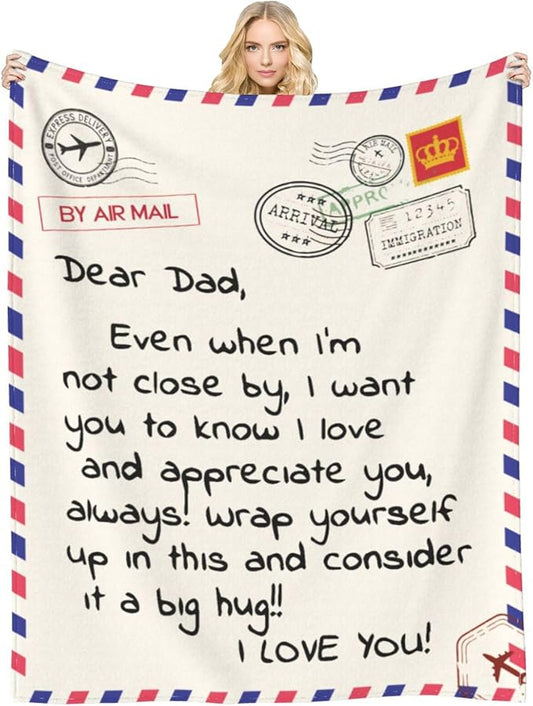 EXPRESS DELIVERY
POST OFFICE DEPARTMENT
AIR MAIL
BY AIR MAIL
ARRIVAL
APPRO
12345
IMMIGRATION
Dear Dad,
Even when I'm
not close by, I want
you to know I love
and appreciate you,
always! wrap yourself
up in this and consider
it a big hug!!
I LOVE YOU!